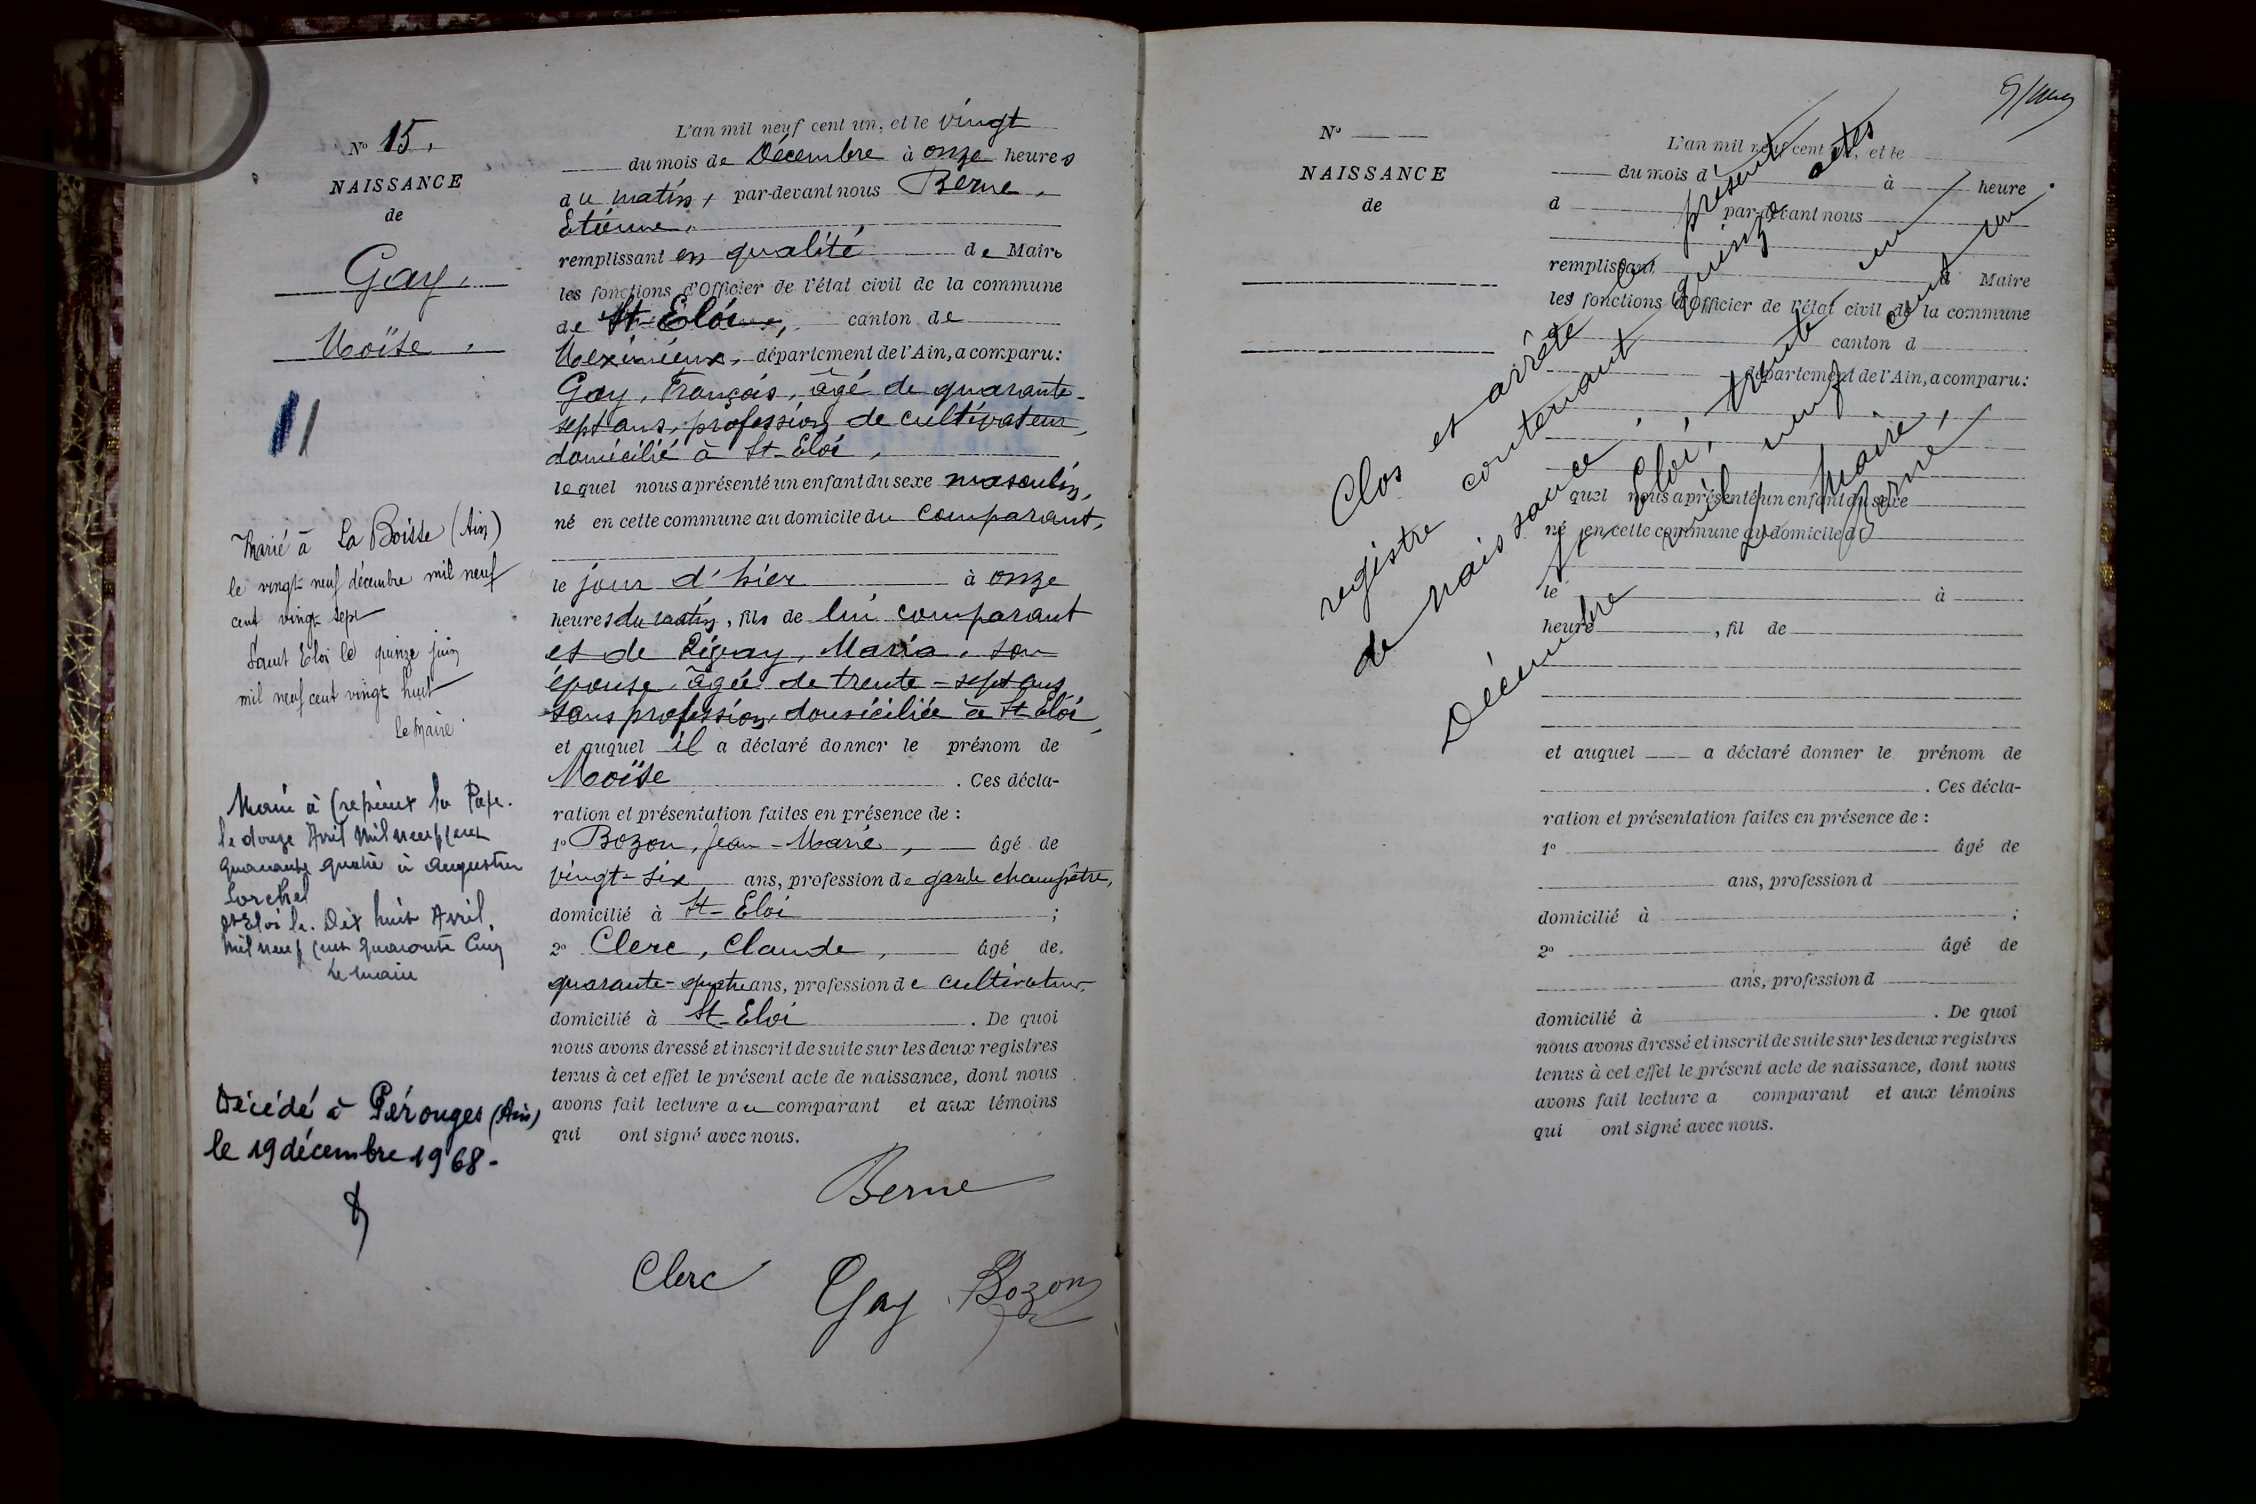 N° 15.
NAISSANCE
de
Gay,
Moïse,
Marié à La Boisse (Ain)
le vingt-neuf décembre mil neuf
cent vingt sept
Saint Eloi le quinze juin
mil neuf cent vingt huit
Le Maire
Marié à Crepieux la Pape.
le douze Avril mil neuf cent
quarante quatre à Augustin
St Eloi le. Dix huit Avril
mil neuf cent quarante cinq
Le maire
Décédé à Pérouges (Ain)
le 19 décembre 1968-
L'an mil neuf cent un, et le vingt
du mois de Décembre à onze heures
du matin, par-devant nous Berne,
Etienne,
remplissant en qualité de Maire
les fonctions d'Officier de l'état civil de la commune
de St-Eloi, canton de
Meximieux, département de l'Ain, a comparu:
Gay, François, âgé de quarante-
sept ans, profession de cultivateur,
domicilié à St-Eloi,
lequel nous a présenté un enfant du sexe masculin,
né en cette commune au domicile du comparant,
le jour d'hier à onze
heures du matin, fils de lui comparant
et de Maria, son
épouse, âgée de trente-sept ans
sans profession, domiciliée à St Eloi,
et auquel il a déclaré donner le prénom de
Moïse. Ces décla-
ration et présentation faites en présence de :
1° Bozon, Jean-Marie, âgé de
vingt-six ans, profession de garde champêtre,
domicilié à St-Eloi ;
2° Clerc, Claude, âgé de
quarante-quatre ans, profession de cultivateur,
domicilié à St-Eloi. De quoi
nous avons dressé et inscrit de suite sur les deux registres
tenus à cet effet le présent acte de naissance, dont nous
avons fait lecture au comparant et aux témoins
qui ont signé avec nous.
Berne
Clerc Gay Bozon
N°
NAISSANCE
de
L'an mil neuf cent un, et le
du mois d à heure
d par-devant nous
remplissant d Maire
les fonctions d'Officier de l'état civil de la commune
canton d
département de l'Ain, a comparu:
quel nous a présenté un enfant du sexe
né en cette commune au domicile d
le à
heure , fil de
et auquel a déclaré donner le prénom de
. Ces décla-
ration et présentation faites en présence de :
1° âgé de
ans, profession d
domicilié à ;
2° âgé de
ans, profession d
domicilié à . De quoi
nous avons dressé et inscrit de suite sur les deux registres
tenus à cet effet le présent acte de naissance, dont nous
avons fait lecture a comparant et aux témoins
qui ont signé avec nous.
Clos et arrêté le présent
registre contenant quinze actes
de naissance.
St-Eloi, trente un
Décembre mil neuf cent un
Le Maire,
Berne